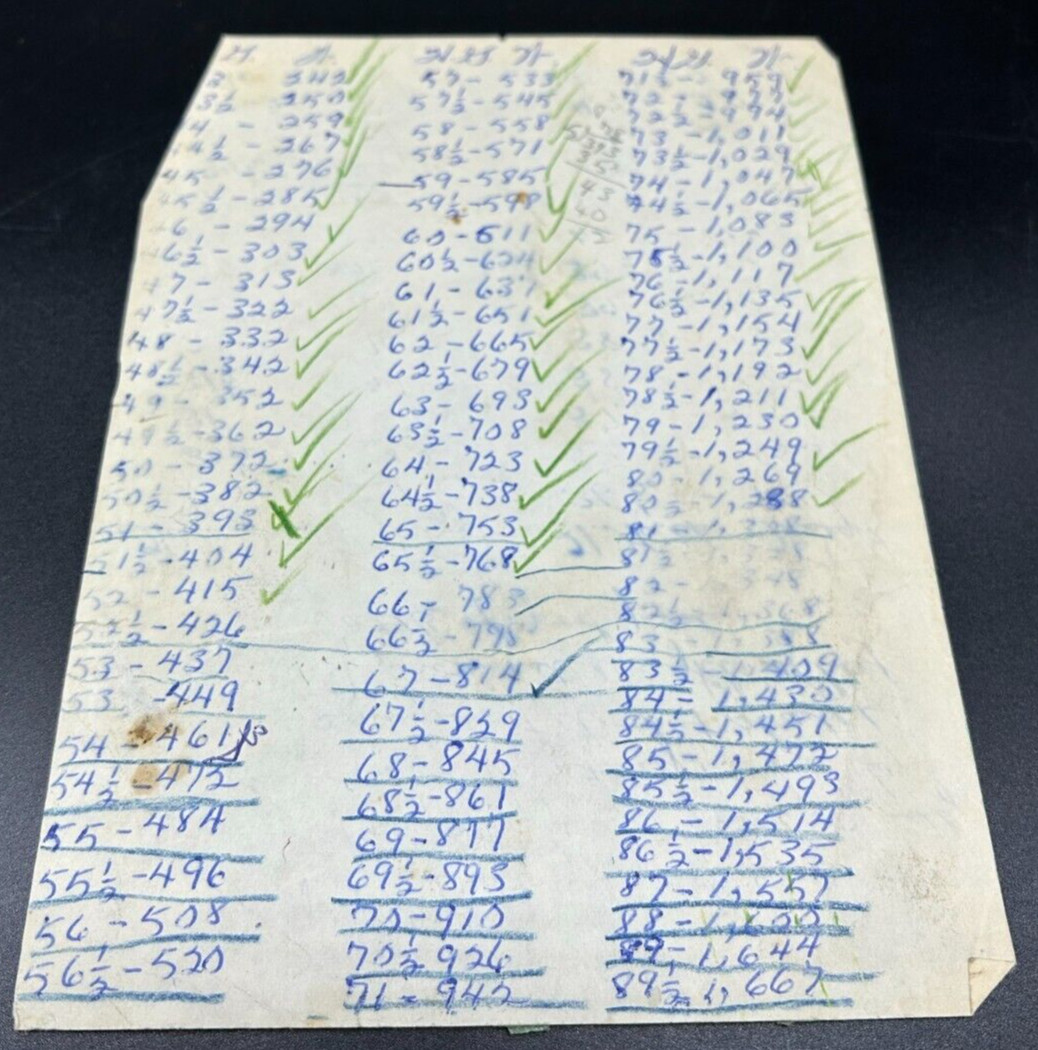 242
3½ 250
4 - 259
4½ - 267
45 - 276
45½ - 285
46 - 294
46½ - 303
47 - 313
47½ - 322
48 - 332
48½ - 342
49 - 352
49½ - 362
50 - 372
50½ - 382
51 - 393
51½ - 404
52 - 415
52½ - 426
53 - 437
53 - 449
54 - 461
54½ - 472
55 - 484
55½ - 496
56 - 508
56½ - 520
57 - 533
57½ - 545
58 - 558
58½ - 571
59 - 585
59½ - 598
60 - 611
60½ - 624
61 - 637
61½ - 651
62 - 665
62½ - 679
63 - 693
63½ - 708
64 - 723
64½ - 738
65 - 753
65½ - 768
66 - 783
66½ - 798
67 - 814
67½ - 829
68 - 845
68½ - 861
69 - 877
69½ - 893
70 - 910
70½ - 926
71 - 942
43
40
71½ - 959
72 - 977
72½ - 994
73 - 1,011
73½ - 1,029
74 - 1,047
74½ - 1,065
75 - 1,083
75½ - 1,100
76 - 1,117
76½ - 1,135
77 - 1,154
77½ - 1,173
78 - 1,192
78½ - 1,211
79 - 1,230
79½ - 1,249
80 - 1,269
80½ - 1,288
81 - 1,308
81½
82 -
82½ - 1,368
83 -
83½ - 1,409
84 - 1,430
84½ - 1,451
85 - 1,472
85½ - 1,493
86 - 1,514
86½ - 1,535
87 - 1,557
88 - 1,600
89 - 1,644
89½ - 1,667